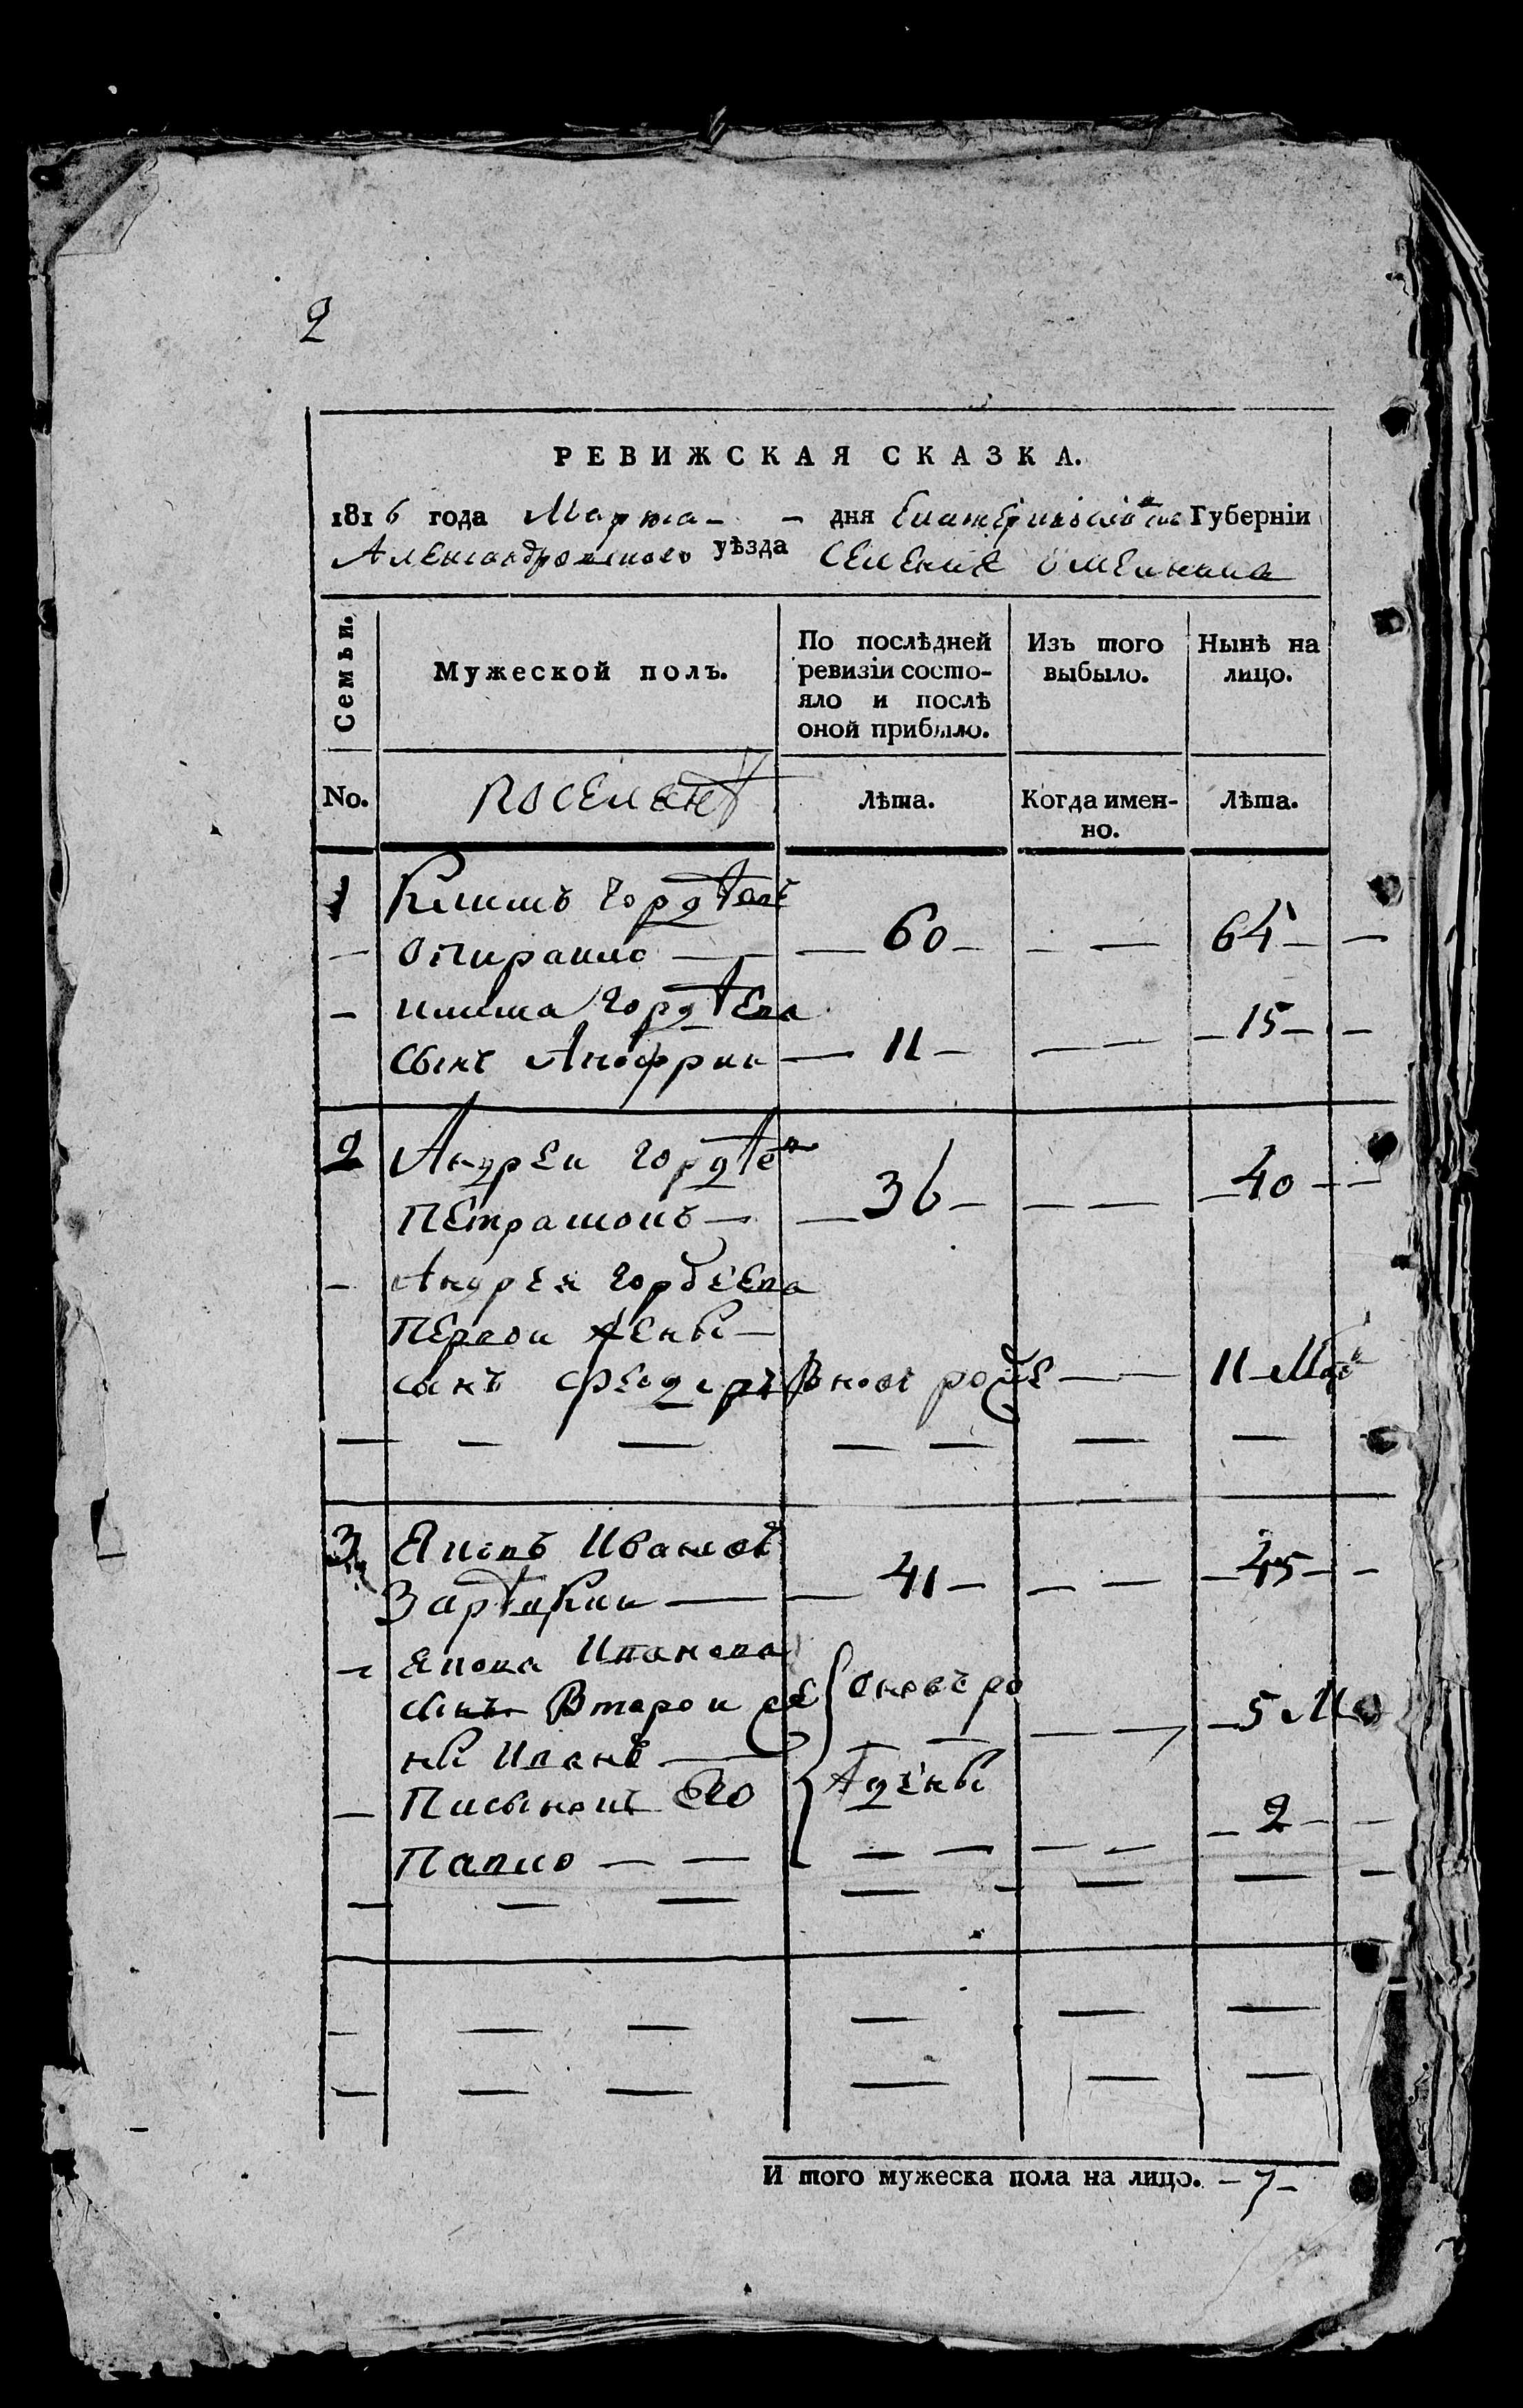 2
РЕВИЖСКАЯ СКАЗКА.
1816 года Марта - - дня Екатеринославской Губерніи
Александровского уѣзда Селение Омелника
Семьи.
Мужеской полъ.
По послѣдней ревизіи состо-
яло и послѣ
оной прибыло.
Изъ того
выбыло.
Нынѣ на
лицо.
No.
поселянъ
лѣта.
Когда имен-
но.
лѣта.
1 Климъ Гордѣевъ
— — 60 — — — 64 — —
— Клима Гордѣева
сынъ Анофрии — 11 — — — — 15 — —
2 Андреи Гордѣев
Петрашовъ — — 36 — — — — 40 — —
— Андрея Гордѣева
Первои жены —
сынъ Федоръ вновь роже — — 11 Мѣс
— — — — — — —
3 Яковъ Ивановъ
— — 41 — — — — 45 — —
— Якова Иванова
сынъ Второи же
ны Иванъ — вновь ро
жденны — — — 5 Мѣ
— Пасынокъ Его
Павло — — — — — — — 2 — —
— — — — — — — —
— — — — — —
— — — — — —
И того мужеска пола на лицо. — 7 —